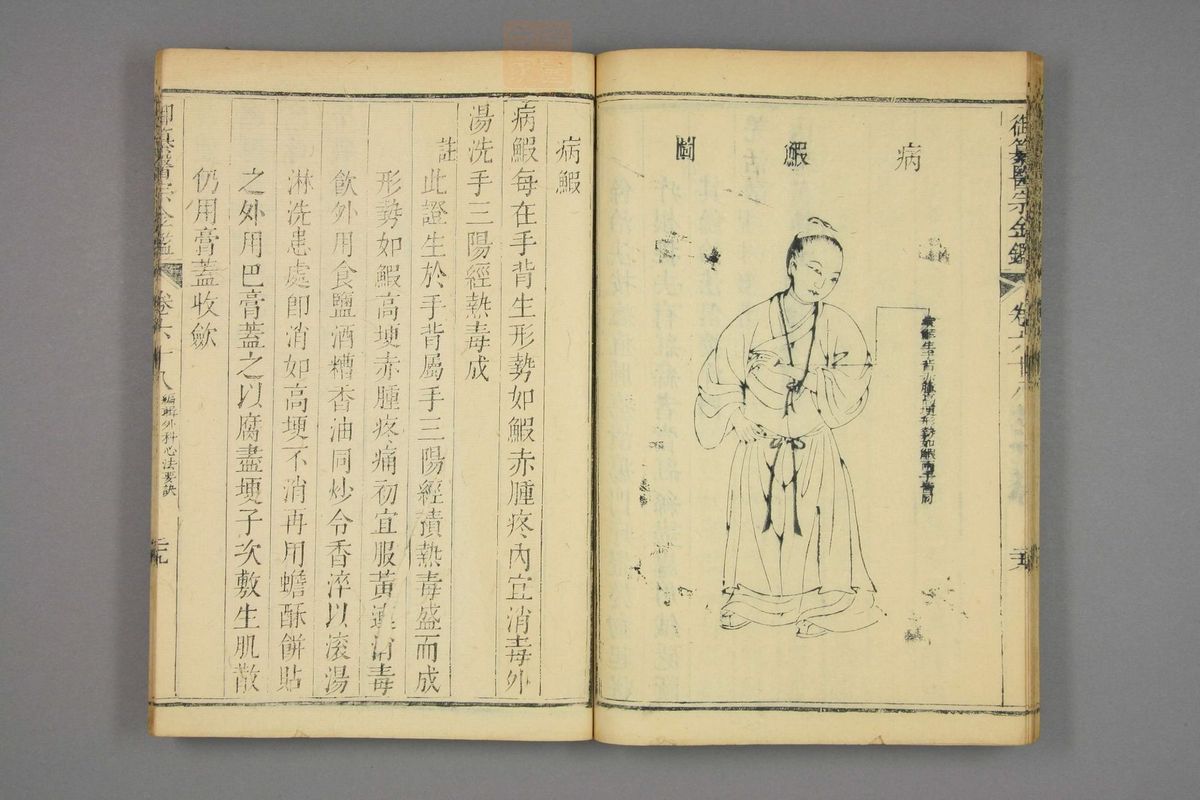 御纂醫宗金鑑 卷六十八
病鰕圖
病鰕生手背赤腫高埂形勢如鰕兩手皆同
病鰕
病鰕每在手背生形勢如鰕赤腫疼內宜消毒外
湯洗手三陽經熱毒成
註 此證生於手背屬手三陽經積熱毒盛而成
形勢如鰕高埂赤腫疼痛初宜服黃連消毒
飲外用食鹽酒糟香油同炒令香淬以滾湯
淋洗患處即消如高埂不消再用蟾酥餅貼
之外用巴膏蓋之以腐盡埂子次敷生肌散
仍用膏蓋收歛
御纂醫宗金鑑 卷六十八 編輯外科心法要訣 二十九